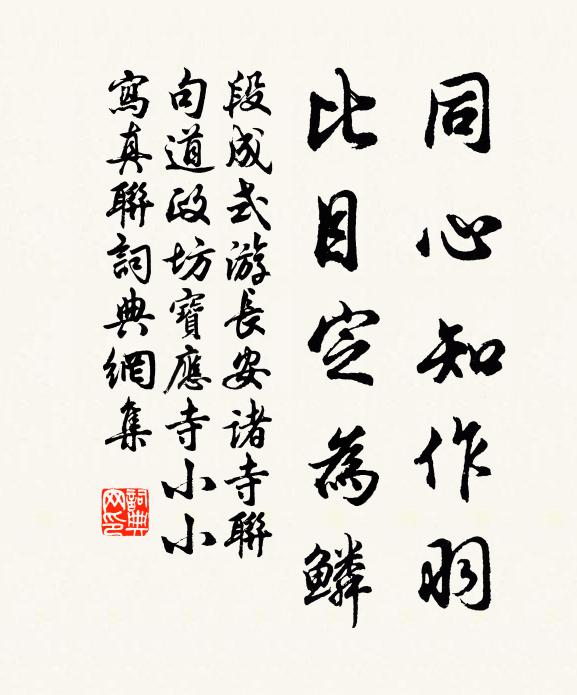 同心知作羽
比目定為鱗
段成式游長安諸寺聯
句道政坊寶應寺小小
寫真聯詞典網集
詞典網印